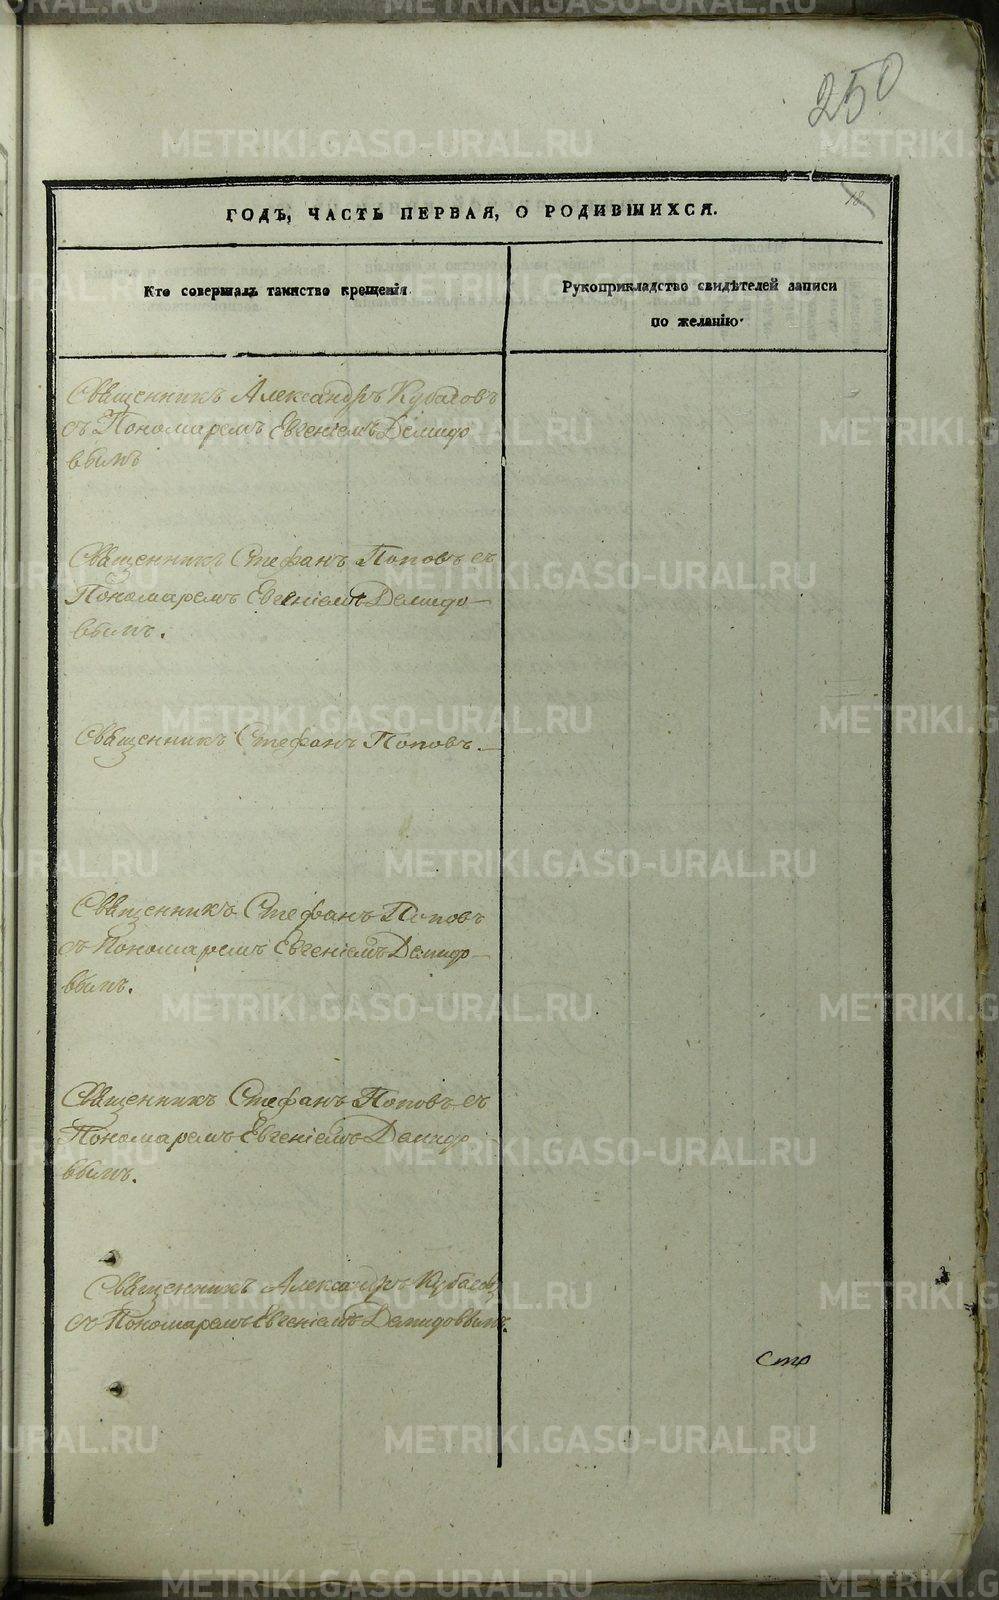 250
18
ГОДЪ, ЧАСТЬ ПЕРВАЯ, О РОДИВШИХСЯ.
Кто совершалъ таинство крещенія.
Рукоприкладство свидѣтелей записи
по желанію.
Священникъ Александръ Кубасовъ
съ Пономаремъ Евгеніемъ Демидо
вымъ
Священникъ Стефанъ Поповъ съ
Пономаремъ Евгеніемъ Демидо—
вымъ.
Священникъ Стефанъ Поповъ.—
Священникъ Стефанъ Поповъ
съ Пономаремъ Евгеніемъ Демидо—
вымъ.
Священникъ Стефанъ Поповъ съ
Пономаремъ Евгеніемъ Демидо
вымъ.
Священникъ Александръ Кубасовъ
съ Пономаремъ Евгеніемъ Демидовымъ.
METRIKI.GASO-URAL.RU